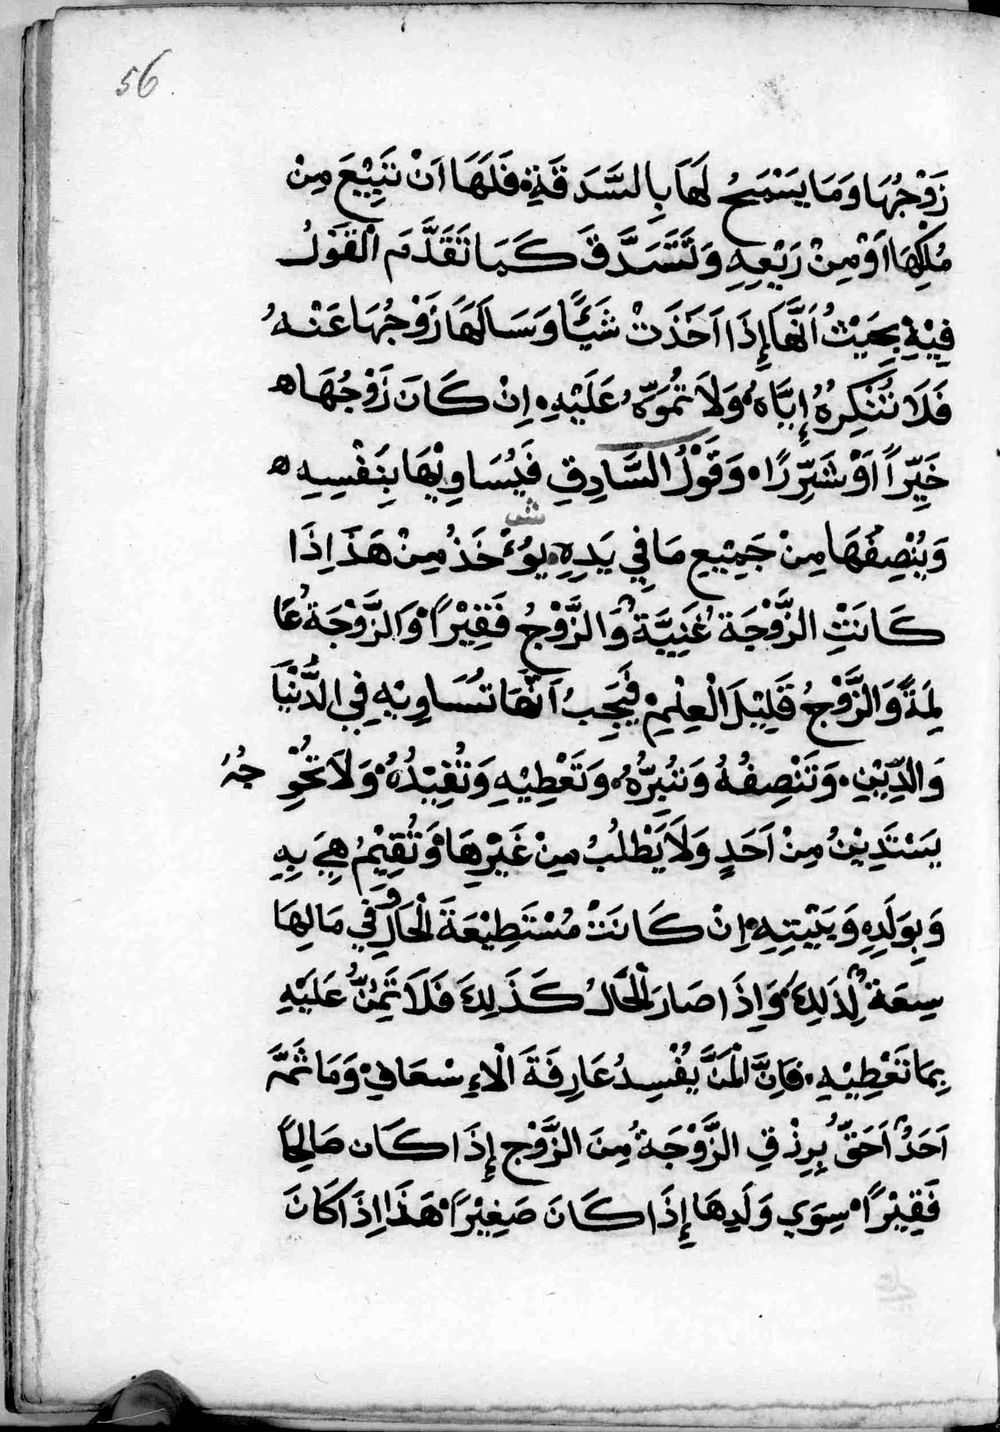 56
زَوْجُهَا وَمَا يَسْمَحُ لَهَا بِالسَّدَقَةِ فَلَهَا اَنْ تَبِيْعَ مِنْ
مُلْكِهَا اَوْ مِنْ رَيْعِهِ وَتَتَسَدَّقَ كَمَا تَقَدَّمَ الْقَوْلُ
فِيْهِ بِحَيْثُ اَنَّهَا إِذَا اَخَذَتْ شَيْئًا وَسَالَهَا زَوْجُهَا عَنْهُ
فَلَا تُنْكِرهُ إِيَّاهُ وَلَا تُمَوِّهُ عَلَيْهِ اِنْ كَانَ زَوْجُهَا ه
خَيِّرًا اَوْ شَرِّرًا وَقَوْلُ السَّادِقِ فَيُسَاوِيْهَا بِنَفْسِهِ ه
ش
وَيُنْصِفُهَا مِنْ جَمِيْعِ مَا فِي يَدِهِ يُوْءخَذُ مِنْ هَذَ اِذَا
كَانَتْ الزَّوْجَةُ غَنِيَّةً وَالزَّوْجُ فَقِيْرًا وَالزَّوْجَةُ عَا
لِمَةً وَالزَّوْجُ قَلِيْلَ الْعِلْمِ فَيَجِبُ اَنَّهَا تُسَاوِيْهِ فِي الدُّنْيَا
وَالدِّيْنِ وَتَنْصِفُهُ وَتُبِرُّهُ وَتَعْطِيْهِ وَتُفِيْدُهُ وَلَا تُحْوِ جُهُ
يَسْتَدِيْنُ مِنْ اَحَدٍ وَلَا يَطْلُبُ مِنْ غَيْرِهَا وَتُقِيْمُ هِيَ بِهِ
وَبِوَلَدِهِ وَبَيْتِهِ اِنْ كَانَتْ مُسْتَطِيْعَةَ الْحَالِ وَفِي مَالِهَا
سِعَةٌ لِذَلِكَ وَاِذَا صَارَ الْحَالُ كَذَلِكَ فَلَا تَمِنُّ عَلَيْهِ
بِمَا تَعْطِيْهِ فَاِنَّ الْمَنَّ يُفْسِدُ عَارِفَةَ الْاِسْعَافِ وَمَا ثَمَّ
اَحَدٌ اَحَقُّ بِرِزْقِ الزَّوْجَةِ مِنَ الزَّوْجِ إِذَا كَانَ صَالِحًا
فَقِيْرًا سِوَي وَلَدِهَا إِذَا كَانَ صَغِيْرًا هَذَا اِذَا كَانَ